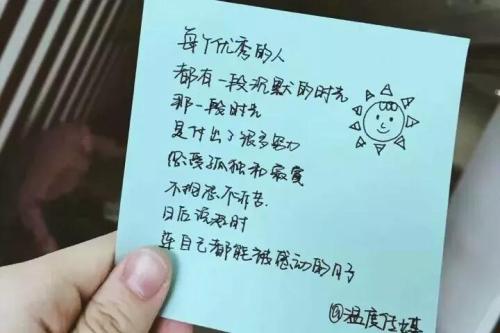 每个优秀的人
都有一段沉默的时光
那一段时光
是付出了很多努力
忍受孤独和寂寞
不抱怨不诉苦
日后说起时
连自己都能被感动的日子
@温度传媒